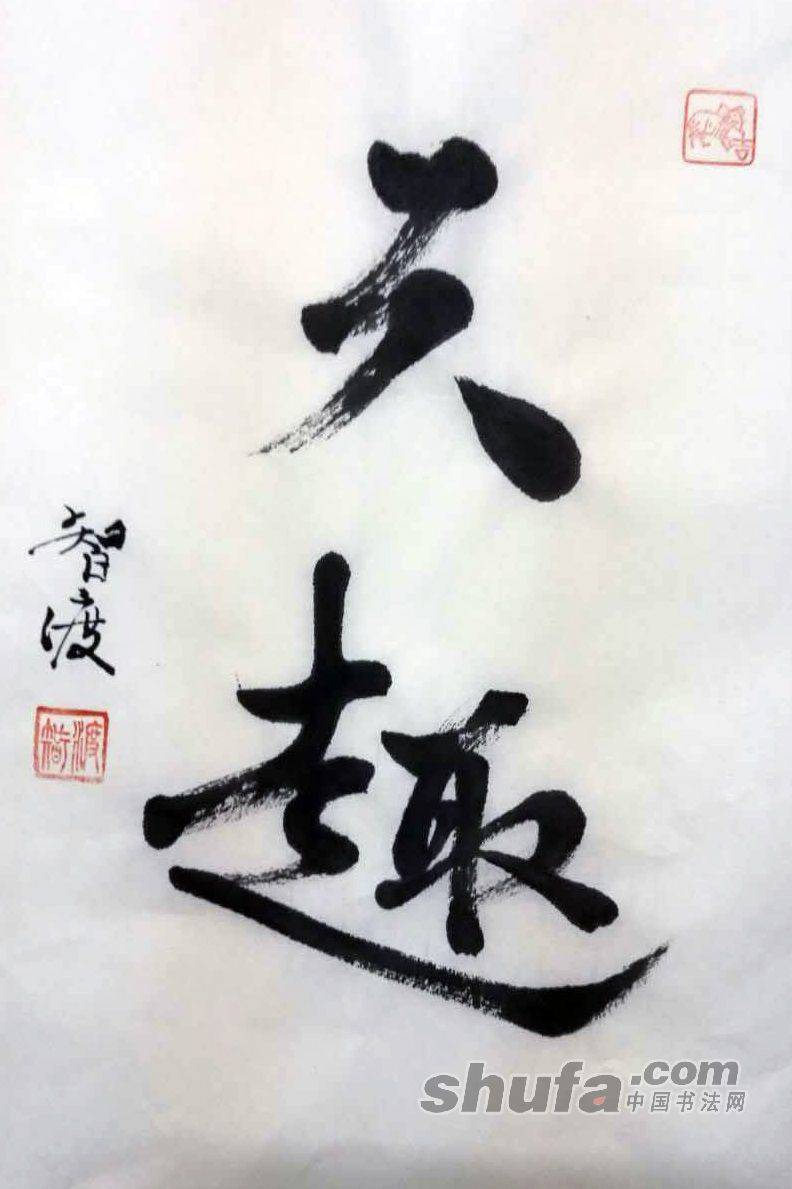 天趣
智渡
吉
智渡
shufa.com
中国书法网